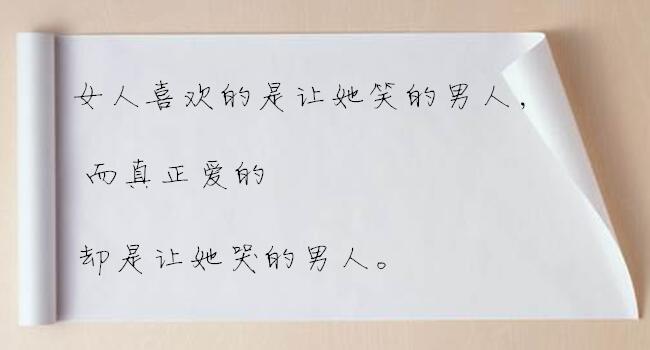 女人喜欢的是让她笑的男人，
而真正爱的
却是让她哭的男人。